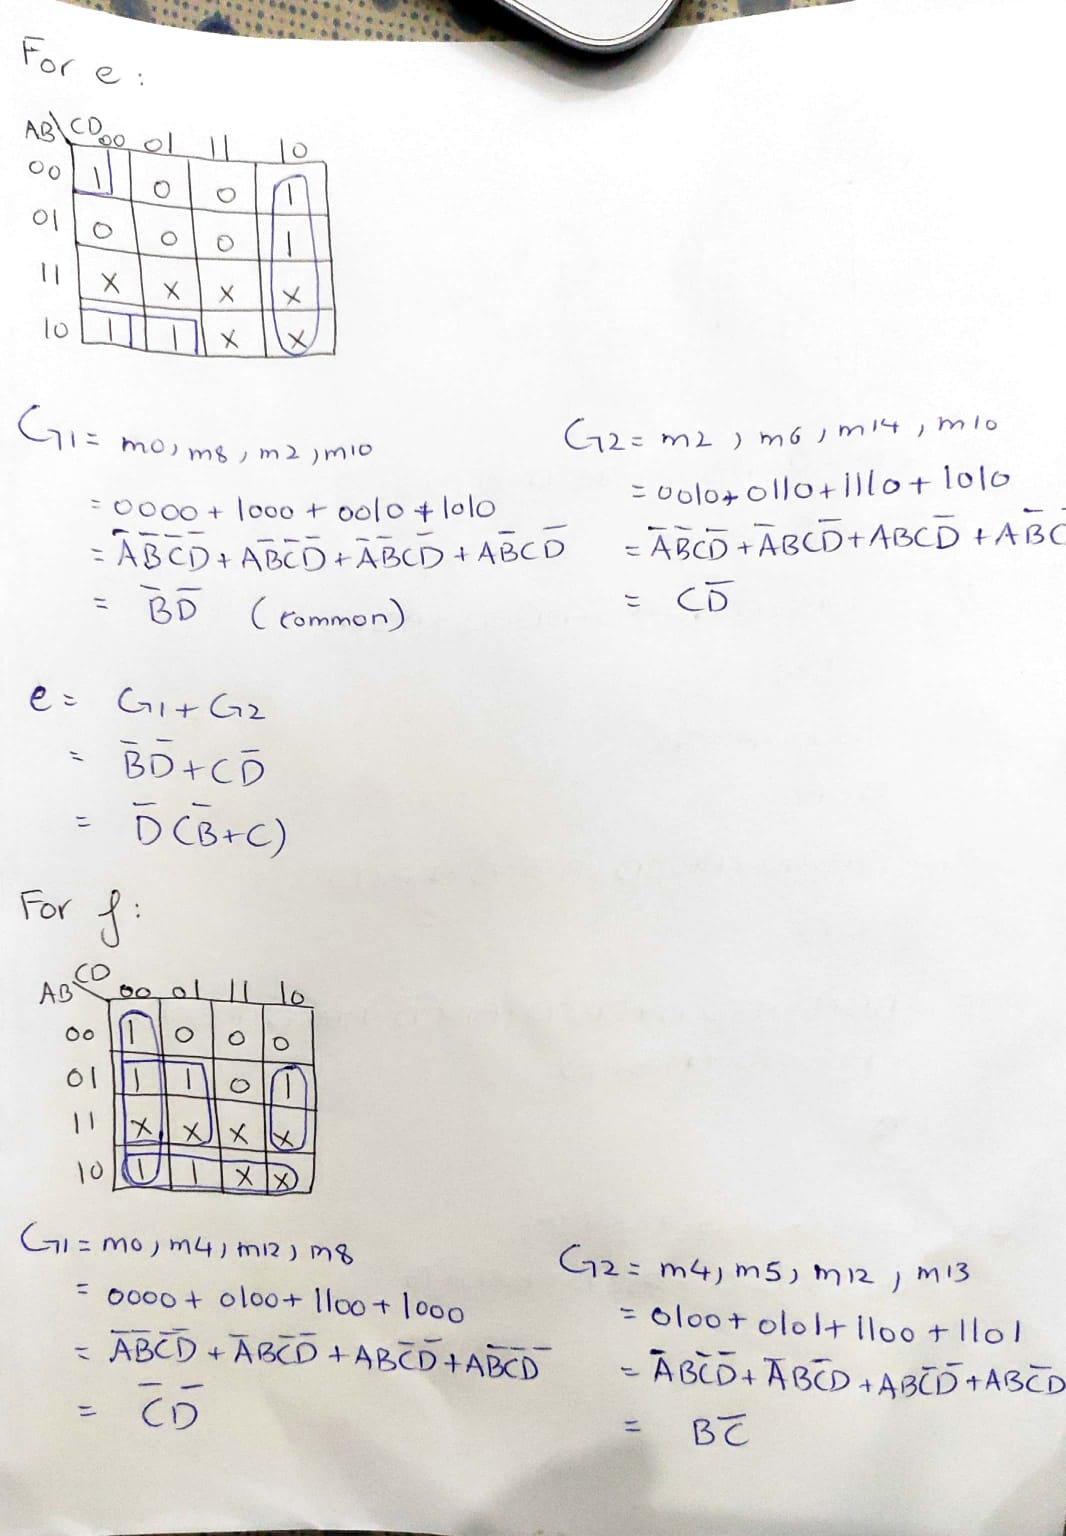 For e :
AB\CD 00 01 11 10
00 1 0 0 1
01 0 0 0 1
11 X X X X
10 1 1 X X
G1 = m0, m8, m2, m10
= 0000 + 1000 + 0010 + 1010
= A̅B̅C̅D̅ + AB̅C̅D̅ + A̅B̅CD̅ + AB̅CD̅
= B̅D̅ (common)
G2 = m2, m6, m14, m10
= 0010 + 0110 + 1110 + 1010
= A̅B̅CD̅ + A̅BCD̅ + ABCD̅ + AB̅C
= CD̅
e = G1 + G2
= B̅D̅ + CD̅
= D̅(B̅+C)
For f :
AB\CD 00 01 11 10
00 1 0 0 0
01 1 1 0 1
11 X X X X
10 1 1 X X
G1 = m0, m4, m12, m8
= 0000 + 0100 + 1100 + 1000
= A̅B̅C̅D̅ + A̅BC̅D̅ + ABC̅D̅ + AB̅C̅D̅
= C̅D̅
G2 = m4, m5, m12, m13
= 0100 + 0101 + 1100 + 1101
= A̅BC̅D̅ + A̅BC̅D + ABC̅D̅ + ABC̅D
= BC̅